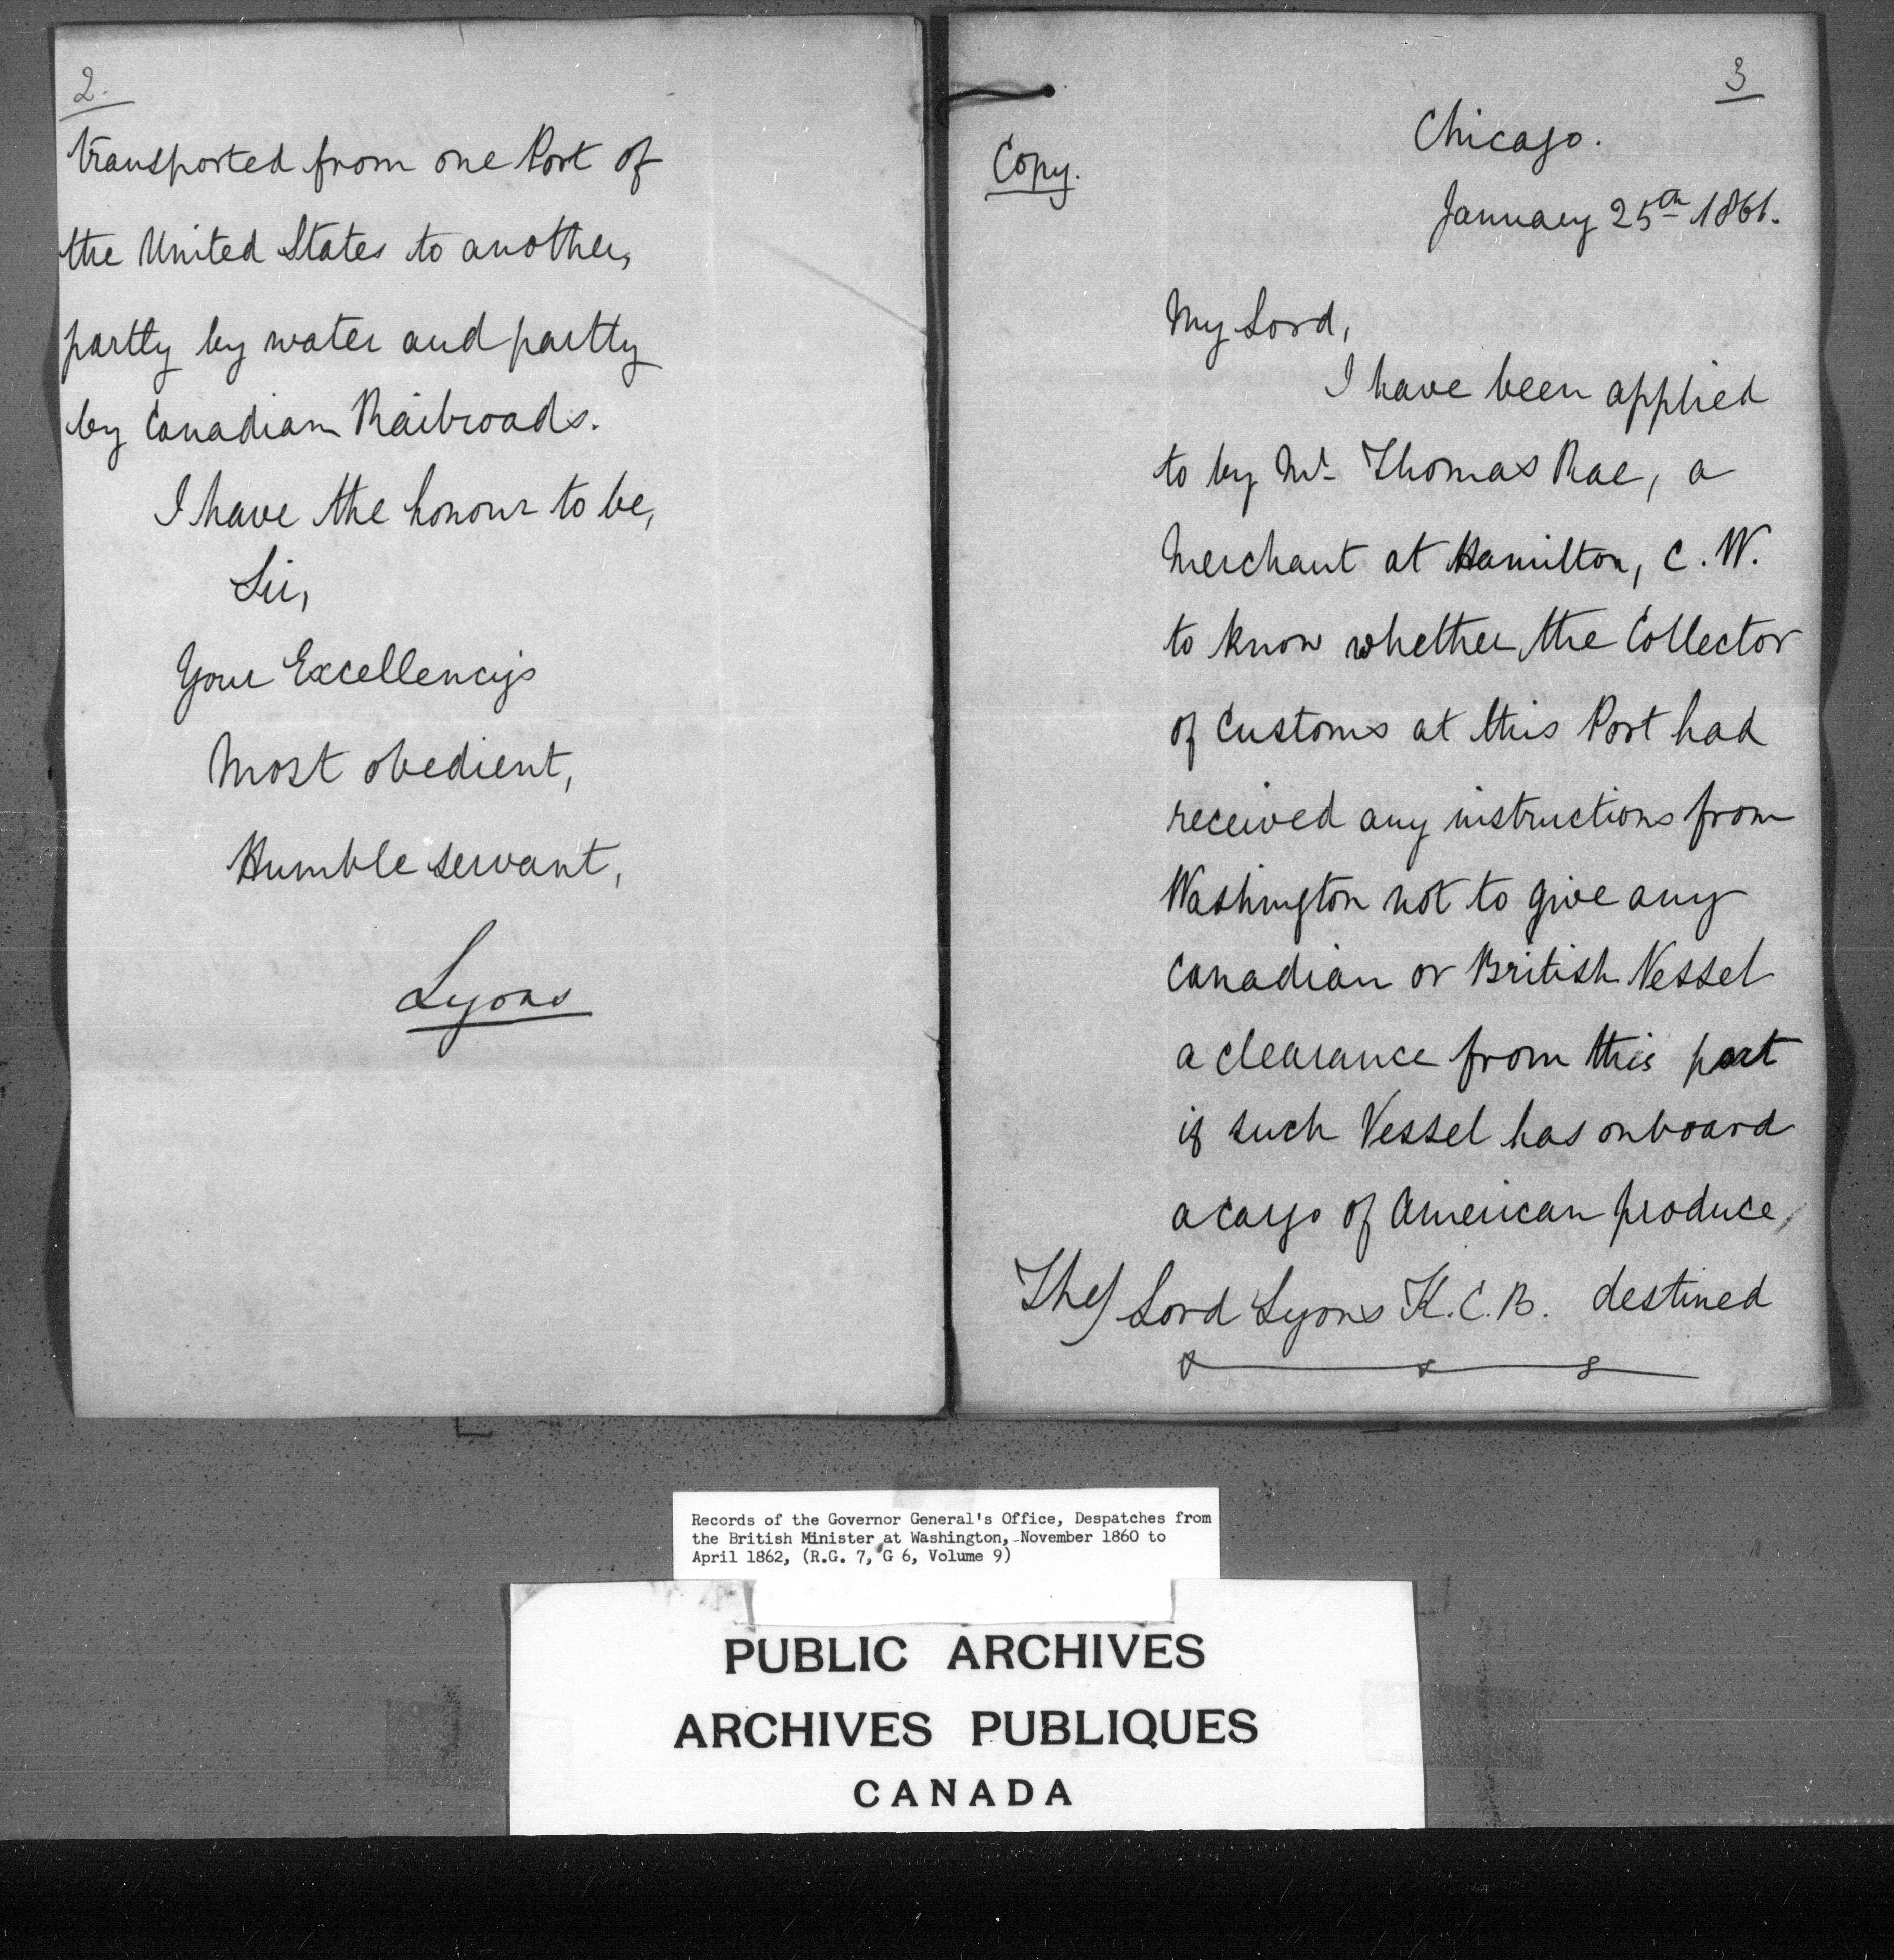 2.
transported from one Port of
the United States to another,
partly by water and partly
by Canadian Railroads.
I have the honour to be,
Sir,
Your Excellency's
Most obedient,
Humble servant,
Lyons
3
Copy.
Chicago.
January 25th 1861.
My Lord,
I have been applied
to by Mr. Thomas Rae, a
Merchant at Hamilton, C. W.
to know whether the Collector
of Customs at this Port had
received any instructions from
Washington not to give any
Canadian or British Vessel
a clearance from this port
if such Vessel has onboard
a cargo of American produce,
The Lord Lyons K.C.B. destined
Records of the Governor General's Office, Despatches from
the British Minister at Washington, November 1860 to
April 1862, (R.G. 7, G 6, Volume 9)
PUBLIC ARCHIVES
ARCHIVES PUBLIQUES
CANADA